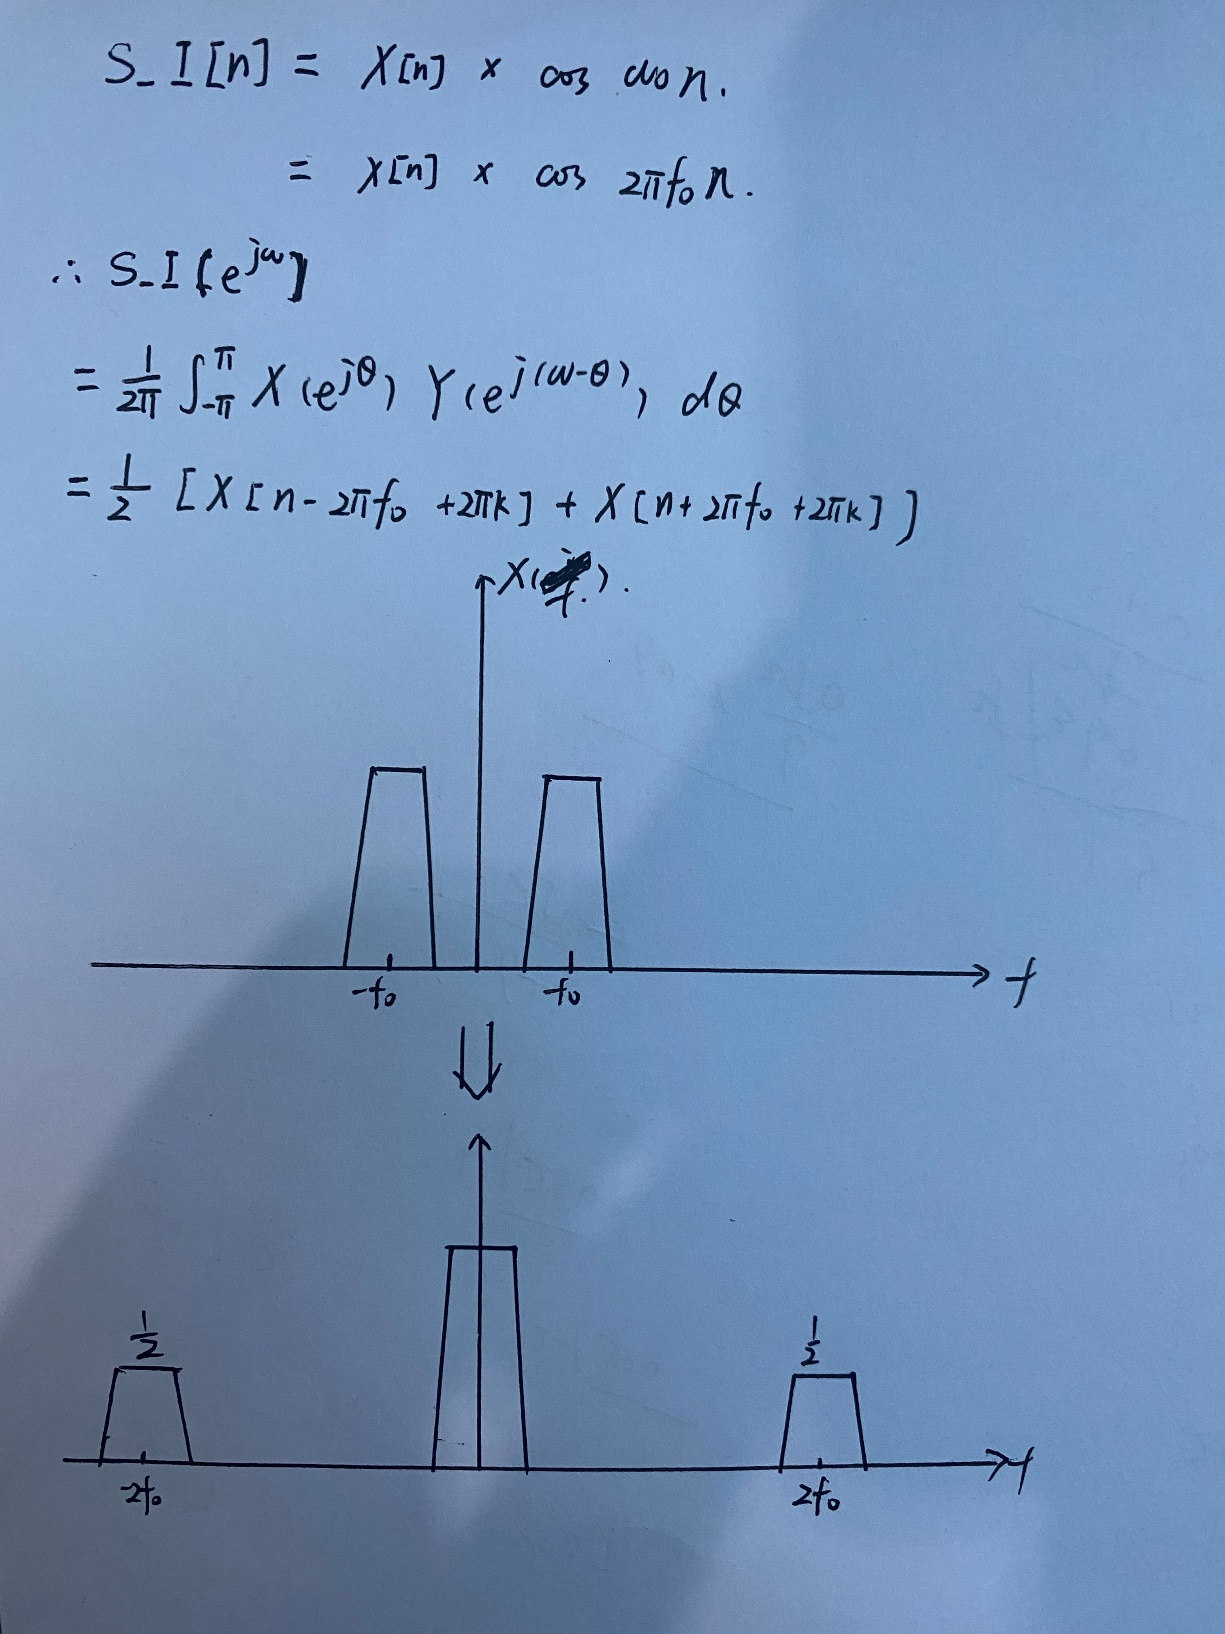 S_I[n] = X[n] × cos ω₀n.
= X[n] × cos 2πf₀n.
∴ S_I[e^jω]
= 1/2π ∫_-π^π X(e^jθ) Y(e^j(ω-θ)) dθ
= 1/2 [X[n-2πf₀ +2πk] + X[n+2πf₀ +2πk]]
X(f).
-f₀ f₀ f
1/2 1/2
-2f₀ 2f₀ f